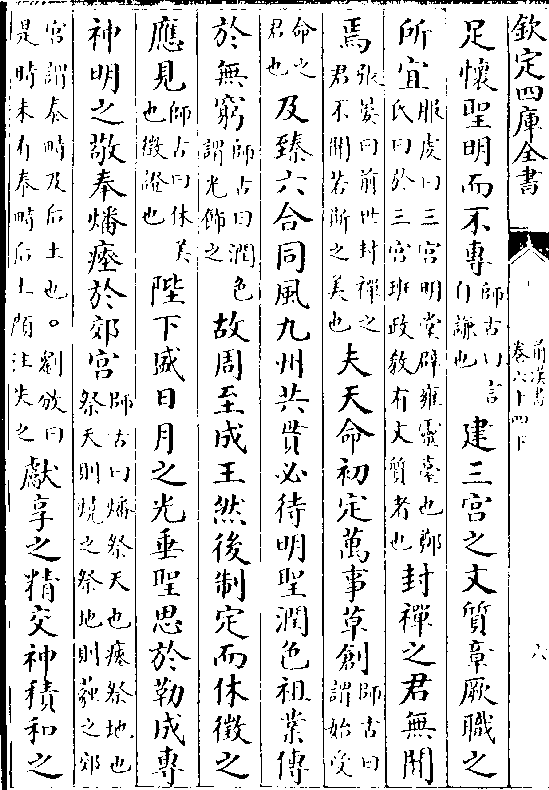 欽定四庫全書
前漢書
卷六十四下
六
足懷聖明而不專師古曰言自謙也建三宮之文質章厥職之
所宜服虔曰三宮明堂辟雍靈臺也鄭氏曰於三宮班政教有文質者也封禪之君無聞
焉張晏曰前世封禪之君不聞若斯之美也夫天命初定萬事草創師古曰謂始受
命之君也及臻六合同風九州共貫必待明聖潤色祖業傳
於無窮師古曰潤色謂光飾之故周至成王然後制定而休徵之
應見師古曰休美也徵證也陛下盛日月之光垂聖思於勒成專
神明之敬奉燔瘞於郊宮師古曰燔祭天也瘞祭地也祭天則燒之祭地則薶之郊
宮謂泰畤及后土也。劉攽曰是時未有泰畤后土顏注失之獻享之精交神積和之